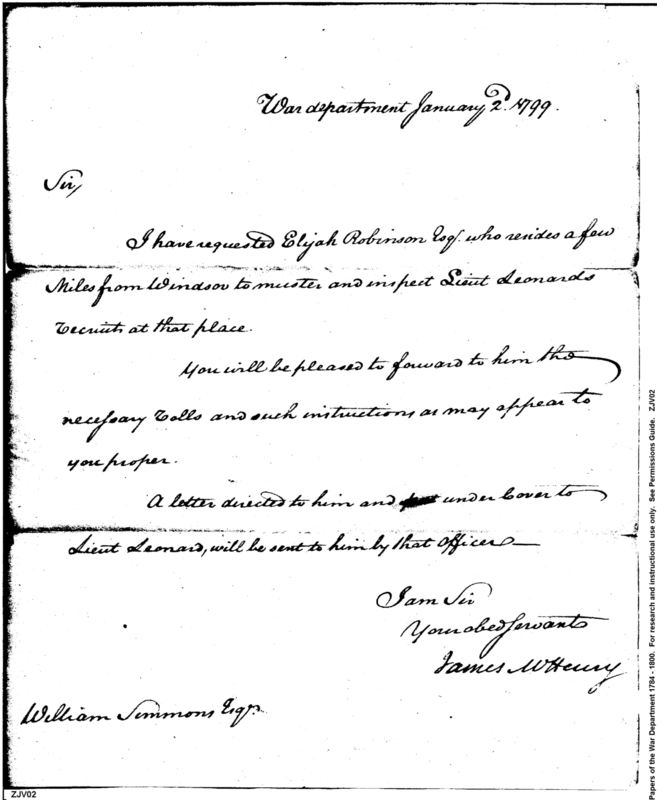 War department January 2d. 1799.
Sir,
I have requested Elijah Robinson Esqr. who resides a few
Miles from Windsor to muster and inspect Lieut Leonards
recruits at that place.
You will be pleased to forward to him the
necessary Rolls and such instructions as may appear to
you proper.
A letter directed to him and under Cover to
Lieut Leonard, will be sent to him by that Officer
I am Sir
Your obed servant
James McHenry
William Simmons Esqr.
ZJV02
Papers of the War Department 1784 - 1800. For research and instructional use only. See Permissions Guide. ZJV02